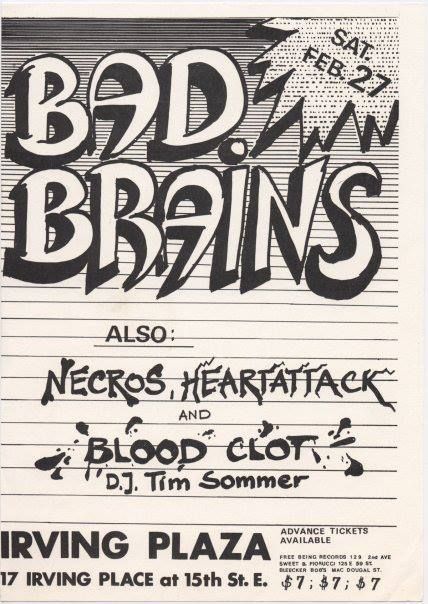 SAT.
FEB. 27
BAD
BRAINS
ALSO:
NECROS, HEARTATTACK
AND
BLOOD CLOT
D.J. Tim Sommer
IRVING PLAZA
17 IRVING PLACE at 15th St. E.
ADVANCE TICKETS
AVAILABLE
FREE BEING RECORDS 129 2nd AVE
SWEET B. FIORUCCI 125 E 59 ST.
BLEECKER BOB'S MAC DOUGAL ST.
$7; $7; $7